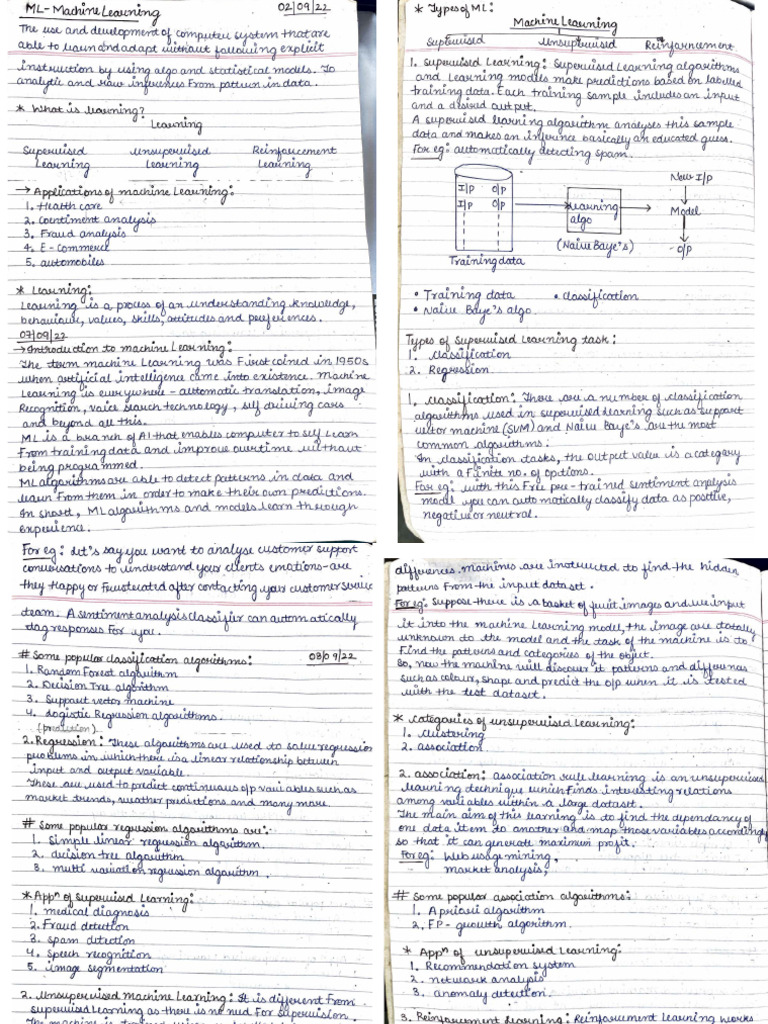 ML-Machine Learning 02/09/22
The use and development of computer system that are
able to learn and adapt without following explicit
instruction by using algo and statistical models. To
analytic and raw influences from pattern in data.
* What is learning?
Learning
Supervised Unsupervised Reinforcement
Learning Learning Learning
→ Applications of machine Learning:
1. Health care
2. Countiment analysis
3. Fraud analysis
4. E-Commerce
5. automobiles
* Learning:
Learning is a process of an understanding knowledge,
behaviour, values, skills, attitudes and preferences.
07/09/22
→ Introduction to machine Learning:
The term machine Learning was First coined in 1950s
when artificial intelligence came into existence. Machine
Learning is everywhere - automatic translation, image
Recognition, voice search technology, self driving cars
and beyond all this.
ML is a branch of AI that enables computer to self learn
From training data and improve overtime without
being programmed.
ML algorithms are able to detect patterns in data and
learn From them in order to make their own predictions.
In short, ML algorithms and models learn through
experience.
* Types of ML:
Machine Learning
Supervised Unsupervised Reinforcement
1. Supervised Learning: Supervised Learning algorithms
and Learning models make predictions based on labelled
training data. Each training sample includes an input
and a desired output.
A supervised learning algorithm analyses this sample
data and makes an inference basically an educated guess.
For eg: automatically detecting spam.
New I/P
I/P O/P
I/P O/P
Learning
algo
Model
(Naive Baye's)
O/P
Training data
• Training data • classification
• Naive Baye's algo.
Types of supervised Learning task:
1. classification
2. Regression
1. classification: There are a number of classification
algorithms used in supervised learning such as support
vector machine (SVM) and Naive Baye's are the most
common algorithms.
In classification tasks, the output value is a category
with a finite no. of options.
For eg: with this Free pre-trained sentiment analysis
model you can automatically classify data as positive,
negative or neutral.
For eg: Let's say you want to analyse customer support
conversations to understand your clients emotions- are
they Happy or Frustecated after contacting your customer service
team. A sentiment analysis classifier can automatically
tag responses For you.
# Some popular classification algorithms: 08/09/22
1. Random Forest algorithm
2. Decision Tree algorithm
3. Support vector machine
4. Logistic Regression algorithms.
(prediction)
2. Regression: These algorithms are used to solve regression
problems in which there is a linear relationship between
input and output variable.
These are used to predict continuous o/p variables such as
market trends, weather predictions and many more.
# Some popular regression algorithms are:
1. Simple linear regression algorithm.
2. decision tree algorithm
3. multi variation regression algorithm.
* Appⁿ of Supervised Learning:
1. medical diagnosis
2. Fraud detection
3. spam detection
4. Speech recognition
5. image segmentation
2. Unsupervised Machine Learning: It is different From
supervised Learning as there is no need For supervision.
differences. machines are instructed to find the hidden
patterns From the input dataset.
For eg: Suppose there is a basket of fruit images and we input
it into the machine Learning model, the image are totally
unknown to the model and the task of the machine is to
Find the patterns and categories of the object.
So, now the machine will discover it patterns and differnas
such as colour, shape and predict the o/p when it is tested
with the test dataset.
* Categories of unsupervised Learning:
1. Clustering
2. association
2. association: association rule learning is an unsupervised
Learning technique which finds interesting relations
among variables within a large dataset.
The main aim of this learning is to find the dependancy of
one data item to another and map those variables accordingly
so that it can generate maximum profit.
For eg: Web usage mining,
market analysis,
# Some popular association algorithms:
1. Apriori algorithm
2. FP-growth algorithm.
* Appⁿ of unsupervised Learning:
1. Recommendation system
2. network analysis
3. anomaly detection.
3. Reinforcement Learning: Reinforcement Learning works